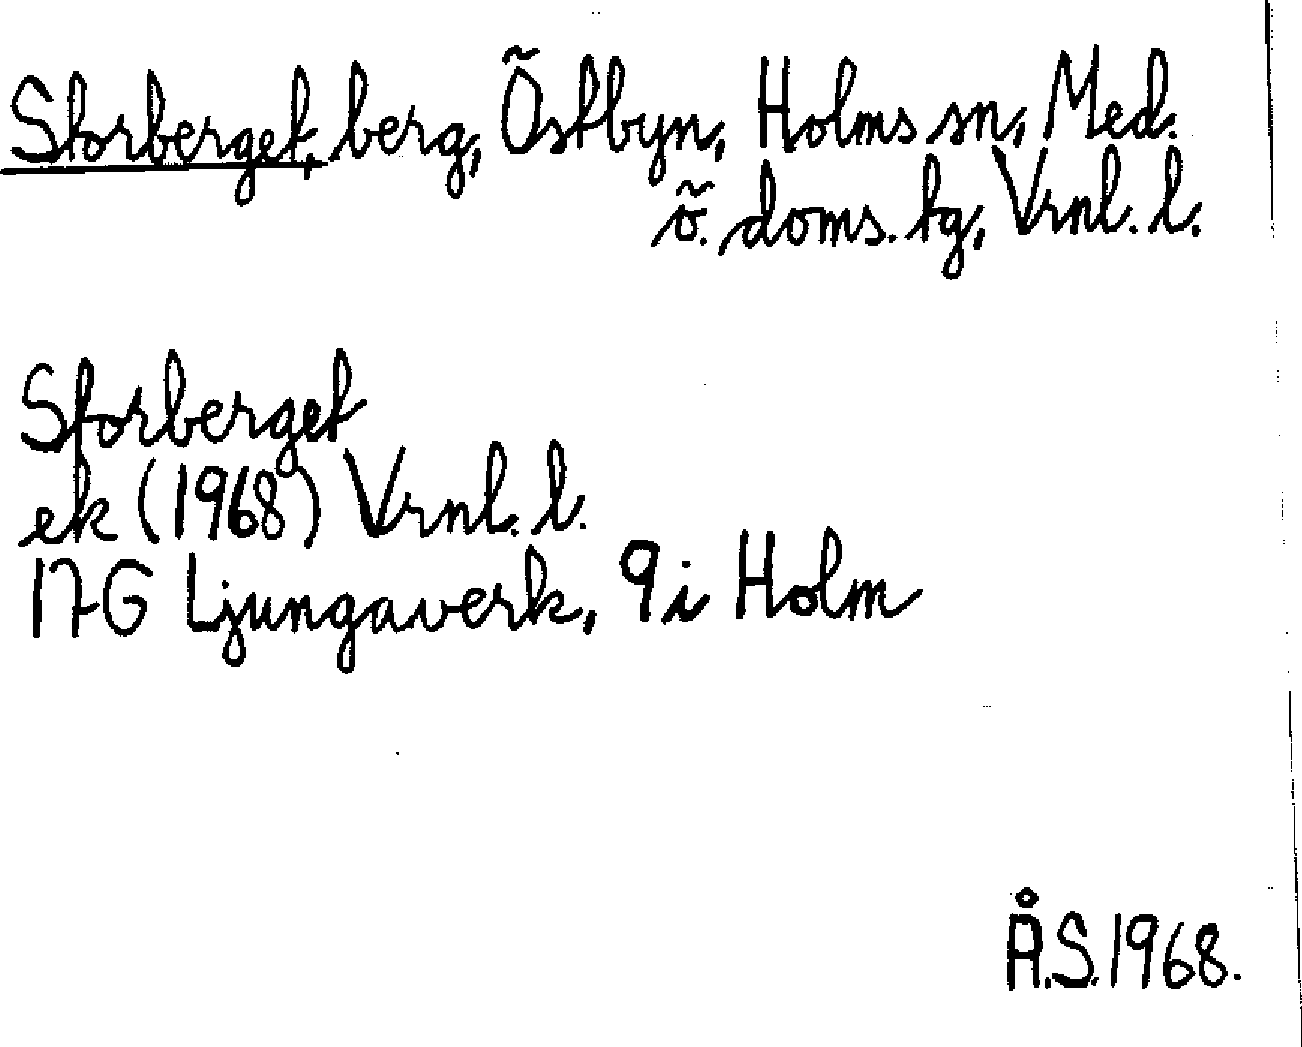 Storberget, berg, Östbyn, Holms sn, Med.
ö. doms. tg, Vrnl. l.
Storberget
ek (1968) Vrnl. l.
17G Ljungaverk, 9i Holm
Å.S. 1968.